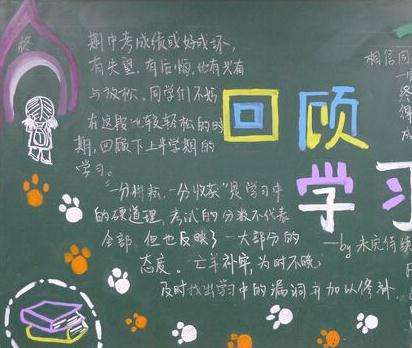 期中考成绩或好或坏，
有失望，有后悔，也有兴奋
与放松。同学们不妨
在这段比较轻松的时
期，回顾下上半学期的
学习。
“一分耕耘，一分收获”是学习中
的硬道理。考试的分数不代表
全部，但也反映了一大部分的
态度。亡羊补牢，为时不晚，
及时找出学习中的漏洞并加以修补
回顾
学习
相信同
一
终
得
成
—by